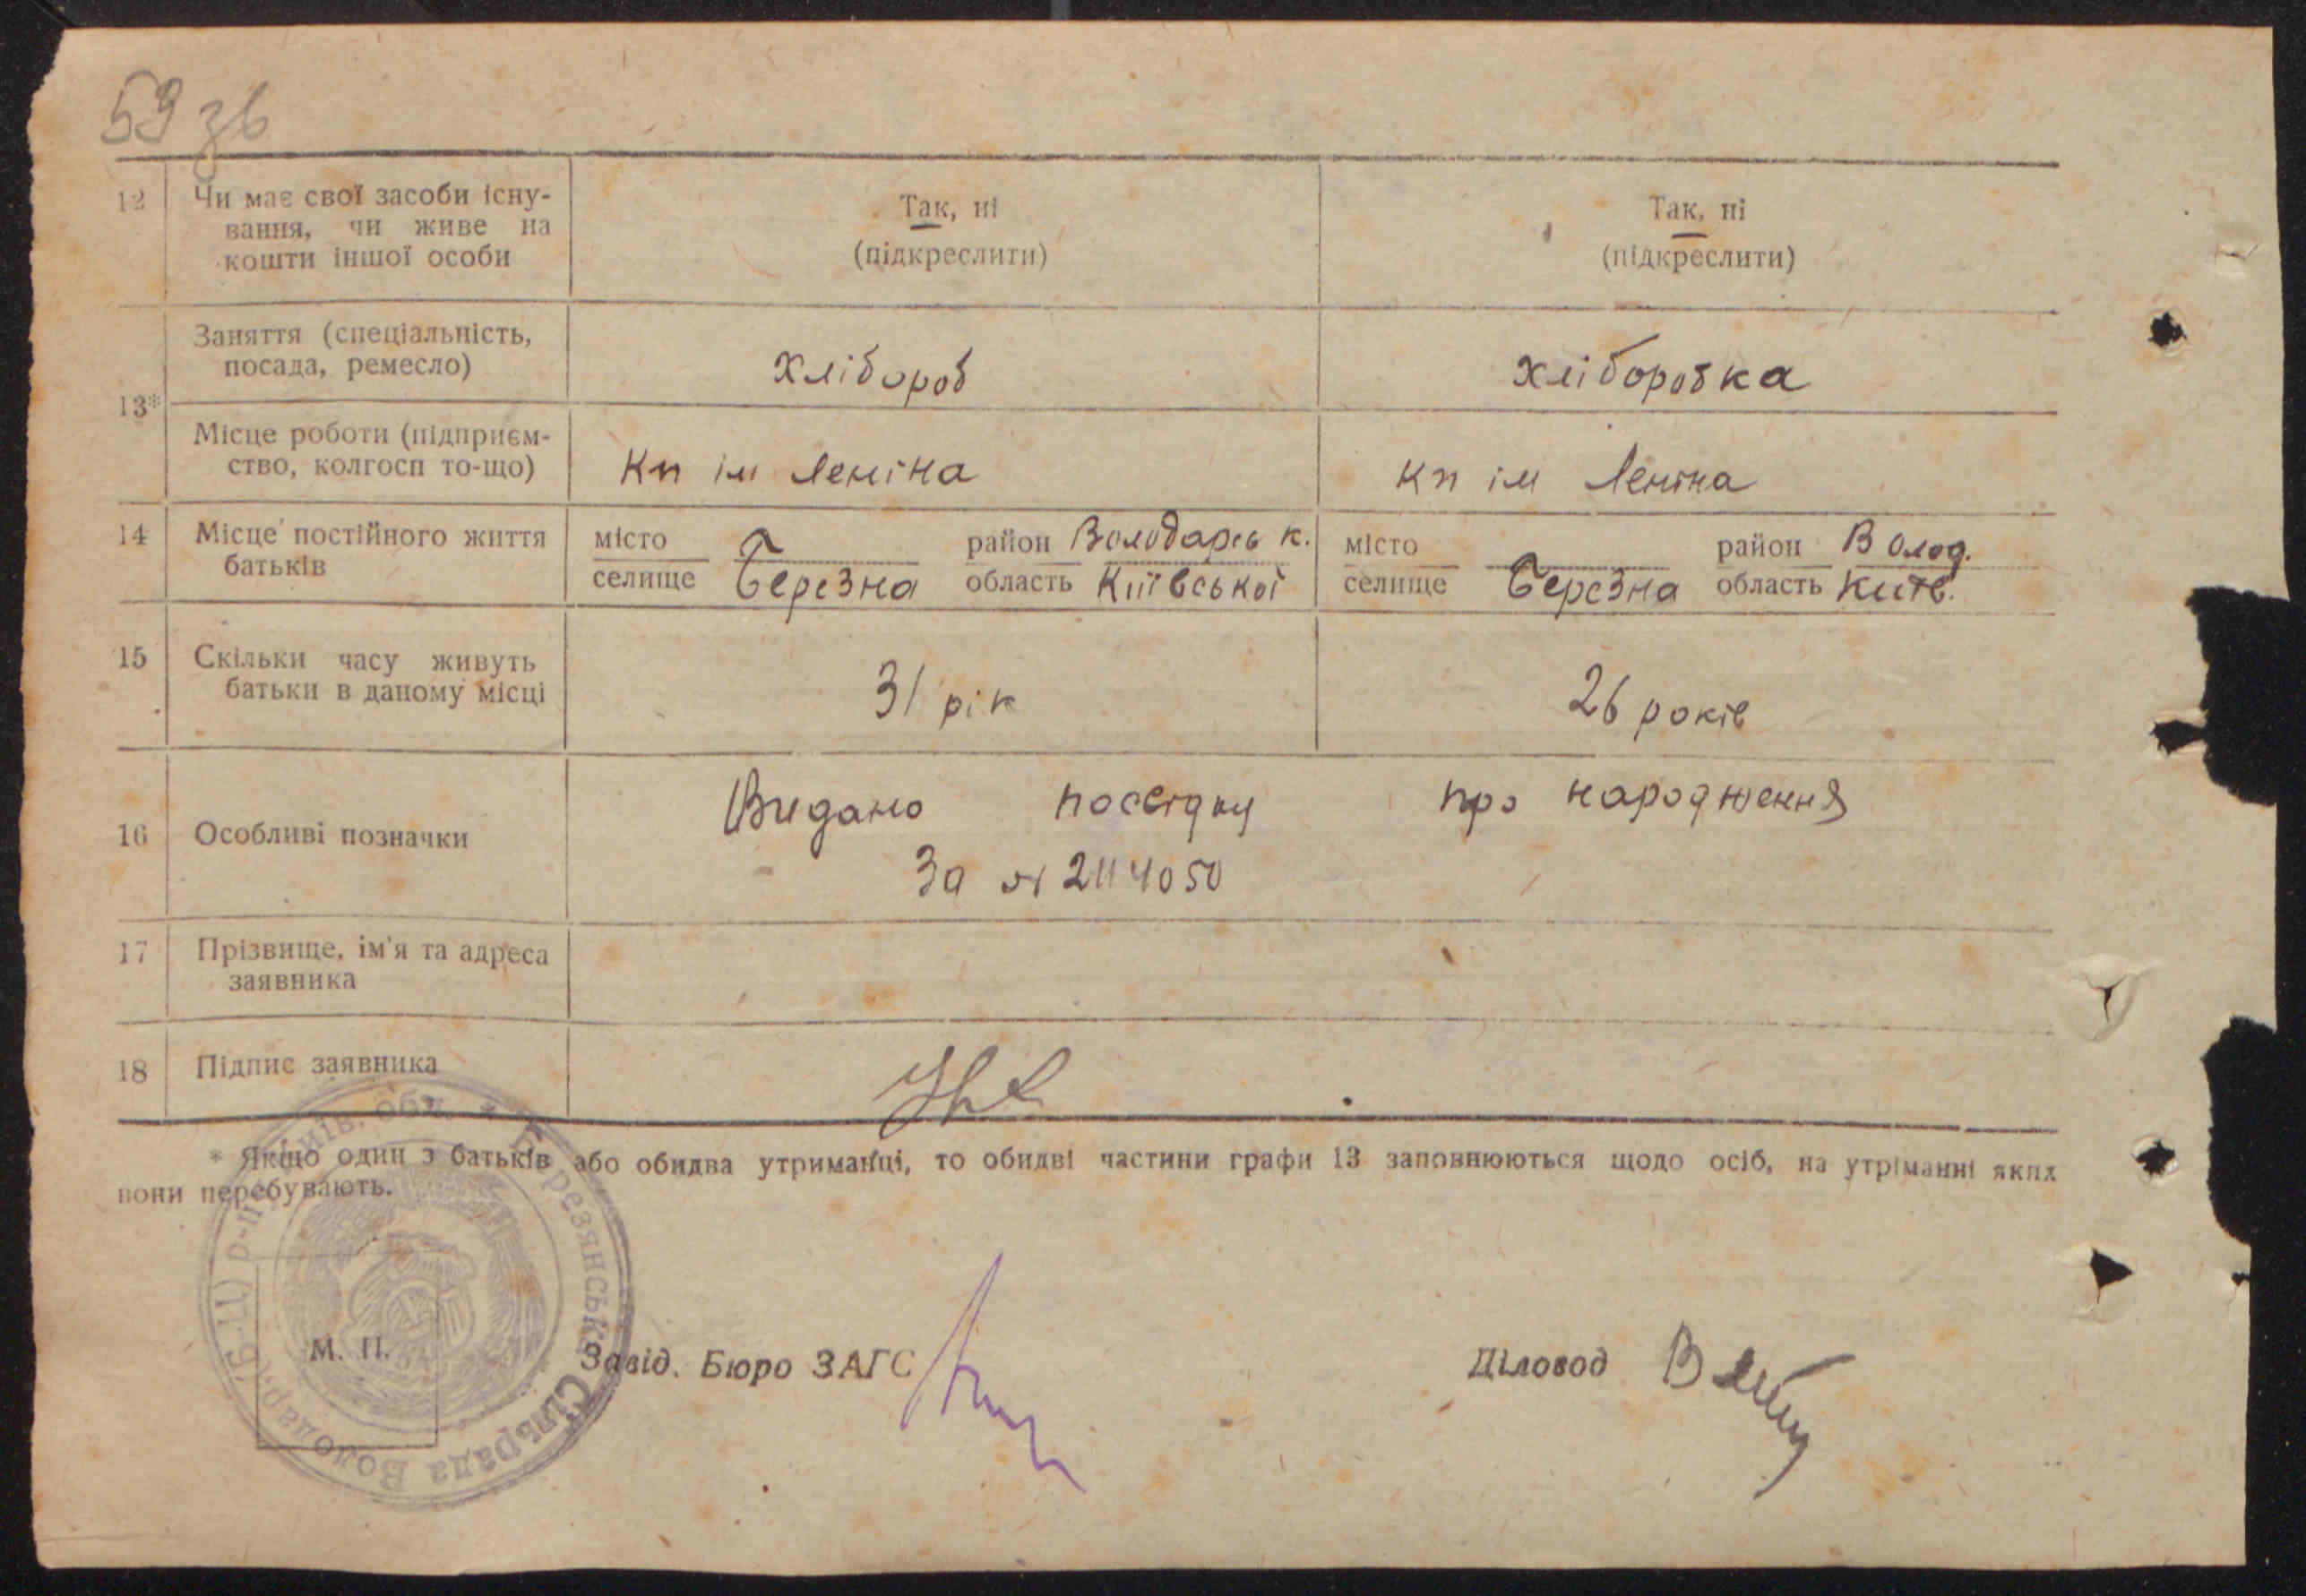 59 зв
12 Чи має свої засоби існу-
вання, чи живе на
кошти іншої особи
Так, ні
(підкреслити)
Так, ні
(підкреслити)
13*
Заняття (спеціальність,
посада, ремесло)
хлібороб
хліборобка
Місце роботи (підприєм-
ство, колгосп то-що)
Кп ім Леніна
Кп ім Леніна
14 Місце постійного життя
батьків
місто
селище Березна
район Володарськ.
область Київської
місто
селище Березна
район Волод.
область Київ.
15 Скільки часу живуть
батьки в даному місці
31 рік
26 років
16 Особливі позначки
Видано посвідку про народження
За № 2114050
17 Прізвище, ім'я та адреса
заявника
18 Підпис заявника
* Якщо один з батьків або обидва утриманці, то обидві частини графи 13 заповнюються щодо осіб, на утріманні яких
вони перебувають.
Березянська Сільрада Володар. (Б-Ц) р-ну Київ. обл.
М. П.
Завід. Бюро ЗАГС
Діловод